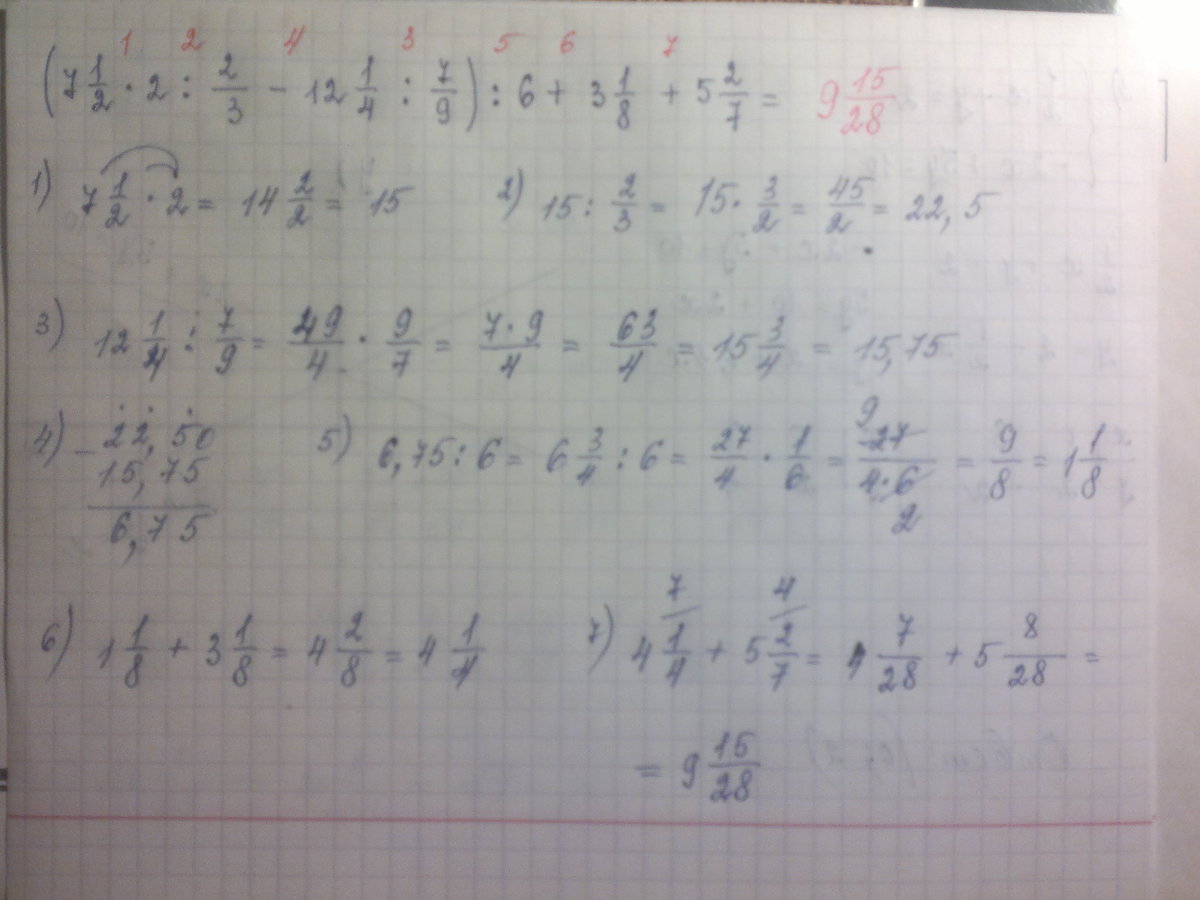 1 2 4 3 5 6 7
(7 1/2 · 2 : 2/3 − 12 1/4 : 7/9) : 6 + 3 1/8 + 5 2/7 = 9 15/28
1) 7 1/2 · 2 = 14 2/2 = 15 2) 15 : 2/3 = 15 · 3/2 = 45/2 = 22,5
3) 12 1/4 : 7/9 = 49/4 · 9/7 = 7·9/4 = 63/4 = 15 3/4 = 15,75
4) − 22,50 5) 6,75 : 6 = 6 3/4 : 6 = 27/4 · 1/6 = 9 27/4·6 2 = 9/8 = 1 1/8
15,75
6,75
6) 1 1/8 + 3 1/8 = 4 2/8 = 4 1/4 7) 4 7/ 1/4 + 5 4/ 2/7 = 4 7/28 + 5 8/28 =
= 9 15/28